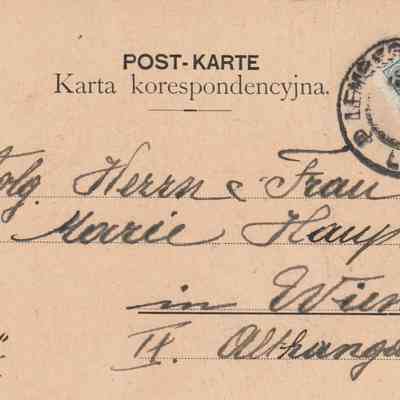 POST-KARTE
Karta korespondencyjna.
LEMBERG
Herrn & Frau
Marie Haup
in Wien
IX. Althanga